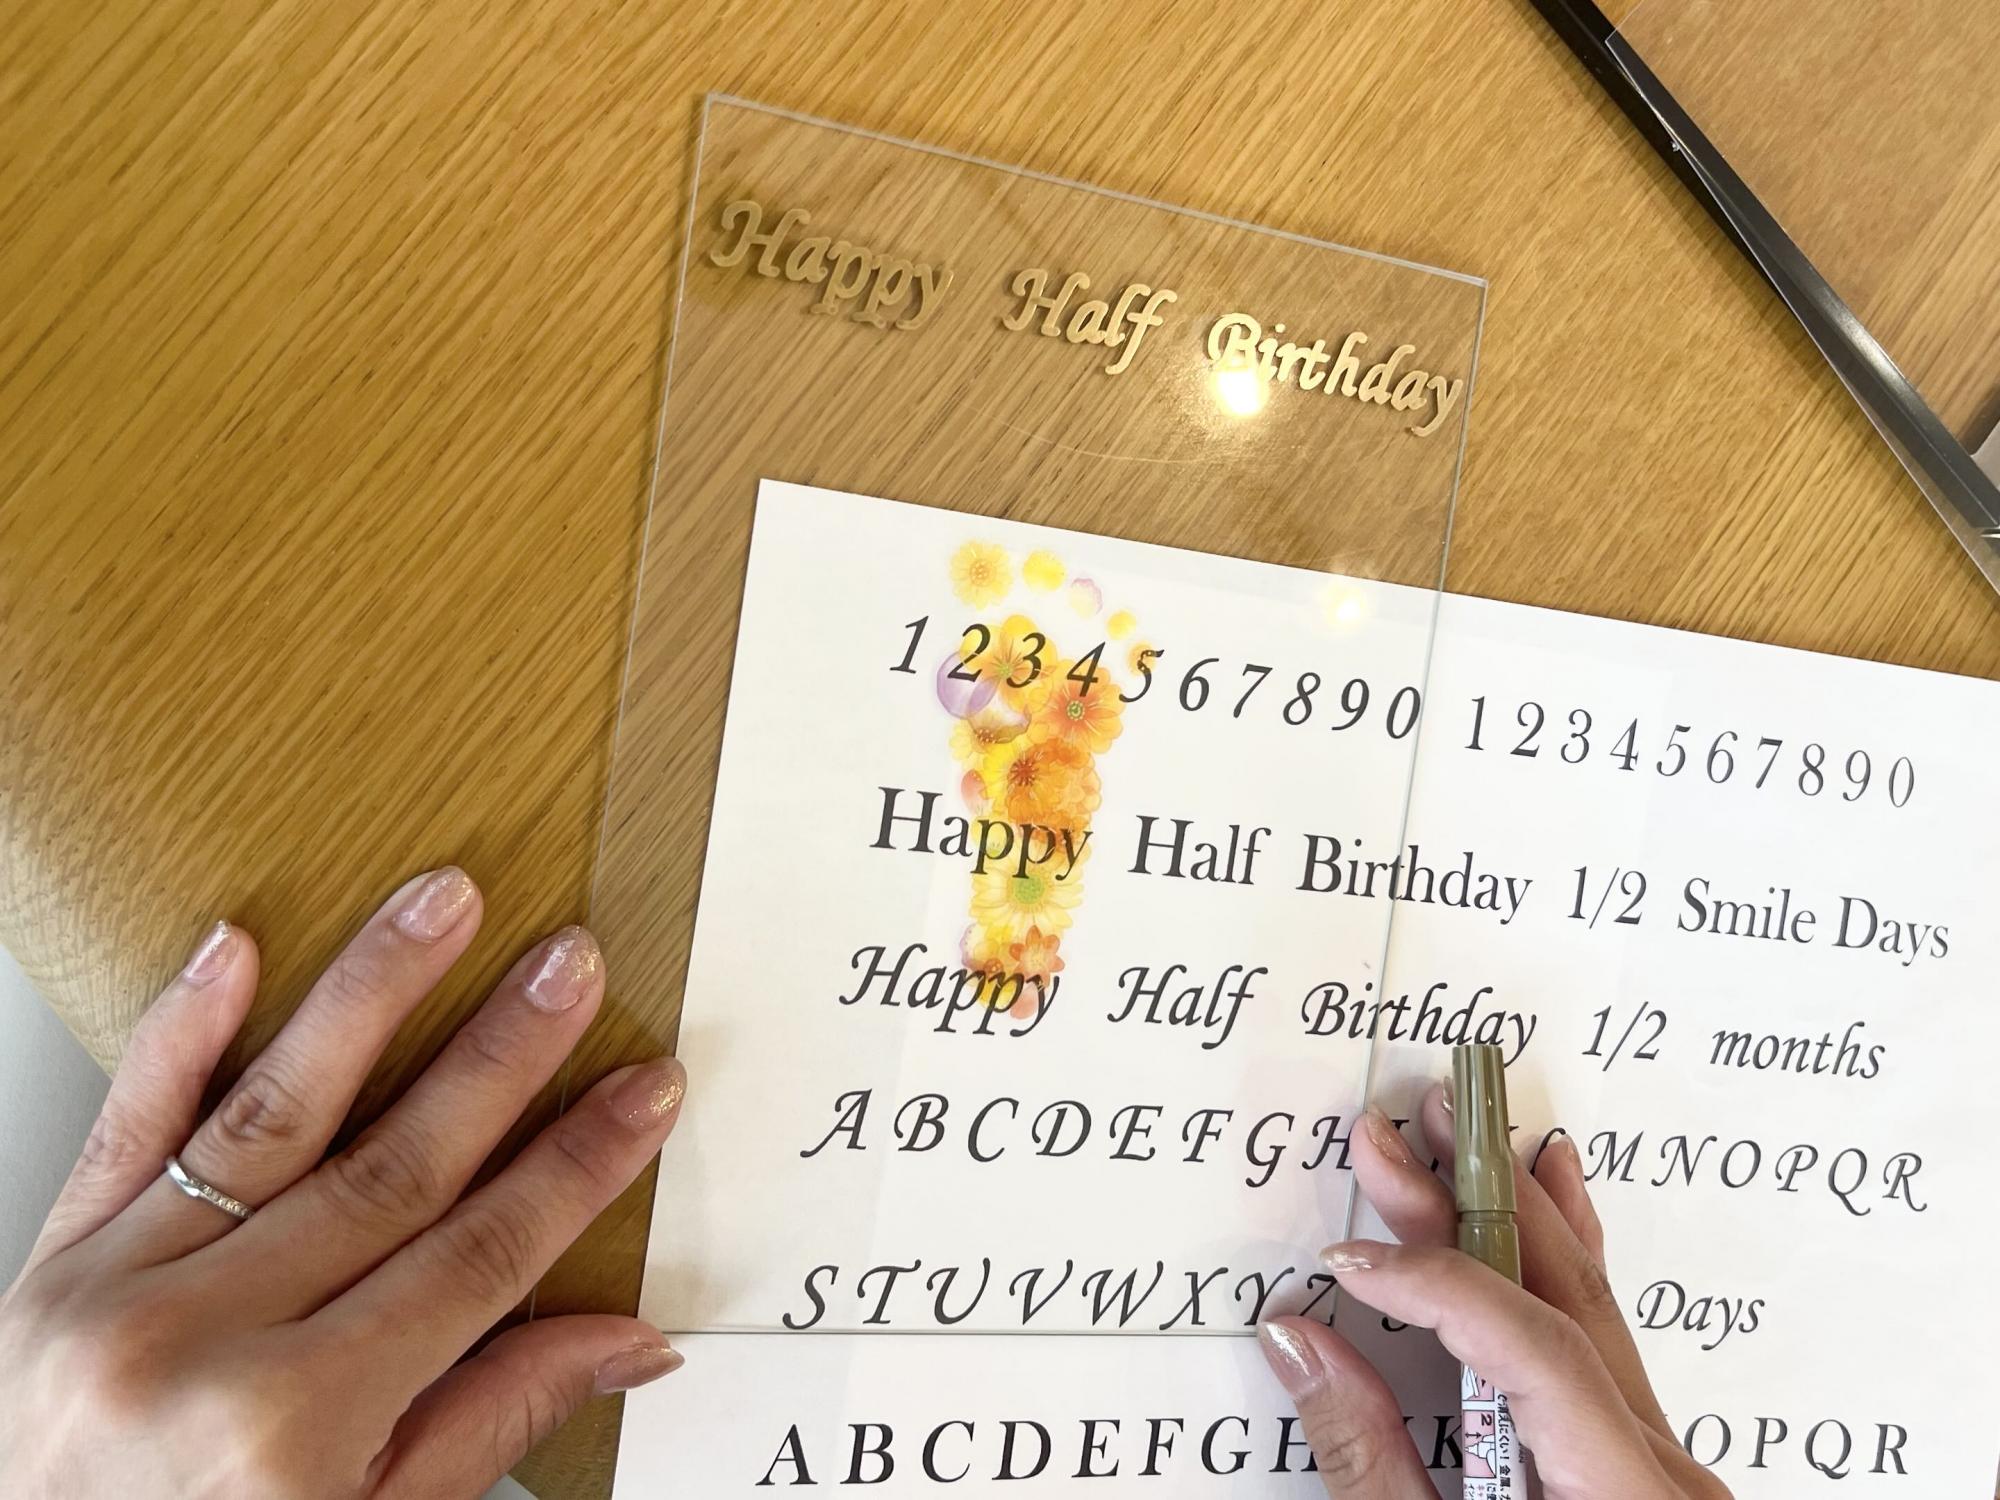 Happy Half Birthday
1 2 3 4 5 6 7 8 9 0 1 2 3 4 5 6 7 8 9 0
Happy Half Birthday 1/2 Smile Days
Happy Half Birthday 1/2 months
A B C D E F G H I M N O P Q R
S T U V W X Y Z Days
A B C D E F G H K O P Q R
で消えにくい! 金属、ガ
2